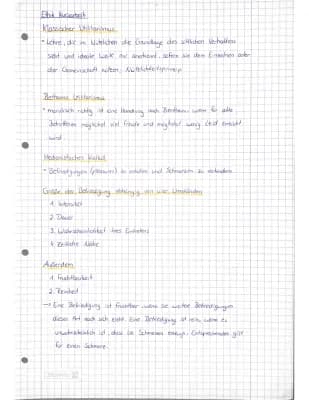 Ethik Kurzarbeit
Klassischer Utilitarismus
• Lehre, die im Nützlichen die Grundlage des sittlichen Verhaltens
sieht und ideale Werte nur anerkennt, sofern sie dem Einzelnen oder
der Gemeinschaft nützen, Nützlichkeitsprinzip
Benthams Utilitarismus
• moralisch richtig ist eine Handlung nach Bentham, wenn für alle
Betroffenen möglichst viel Freude und möglichst wenig Leid erreicht
wird
Hedonistisches Kalkül
- Befriedigungen (pleasures) zu erhalten und Schmerzen zu verhindern
Größe der Befriedigung abhängig von vier Umständen
1. Intensität
2. Dauer
3. Wahrscheinlichkeit ihres Eintretens
4. Zeitliche Nähe
Außerdem
1. Fruchtbarkeit
2. Reinheit
→ Eine Befriedigung ist fruchtbar, wenn sie weitere Befriedigungen
dieser Art nach sich zieht. Eine Befriedigung ist rein, wenn es
unwahrscheinlich ist, dass sie Schmerzen erzeugt. Entsprechendes gilt
für einen Schmerz.